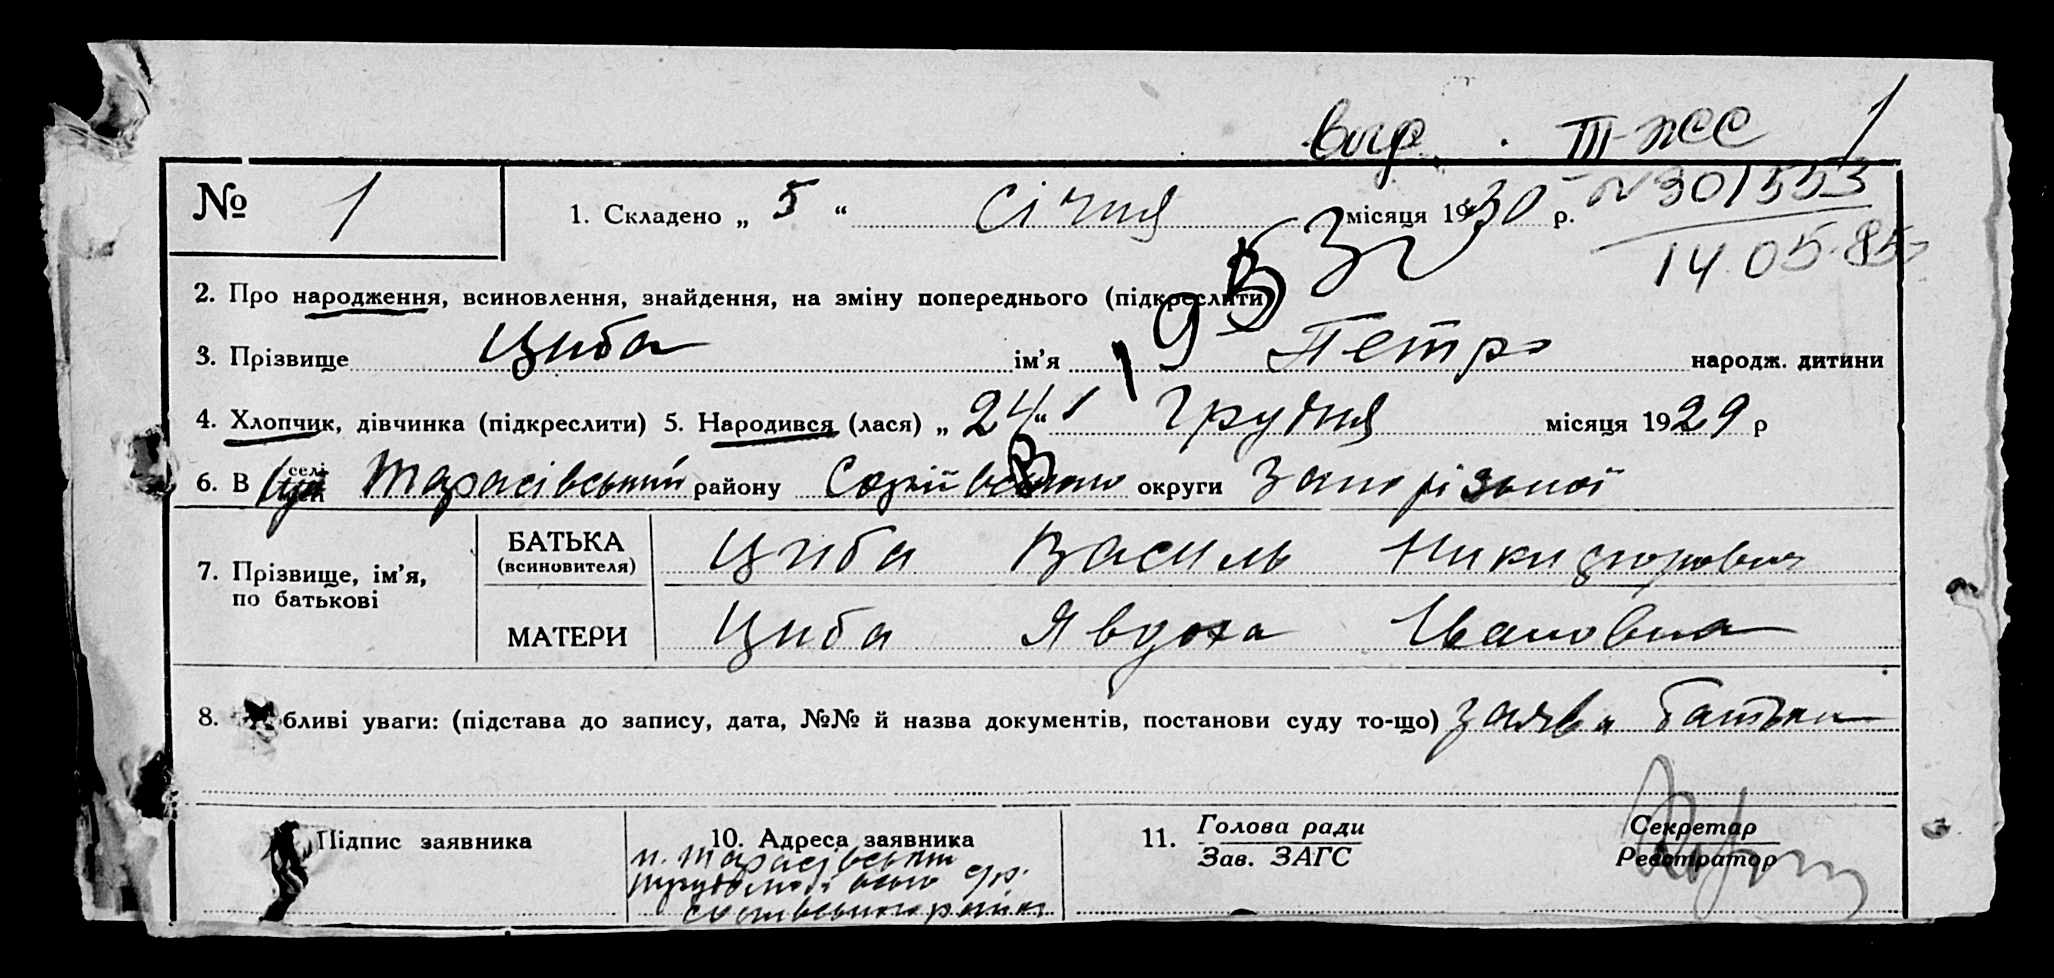 вид. III-ЖС 1
№ 1
№ 301553
1. Складено „ 5 “ січня місяця 1930 р.
14.05.85
2. Про народження, всиновлення, знайдення, на зміну попереднього (підкреслити)
3. Прізвище Циба ім'я Петро народж. дитини
4. Хлопчик, дівчинка (підкреслити) 5. Народився (лася) „ 24 “ грудня місяця 1929 р
6. В селі Тарасівський району Софіївського округи Запорізької
7. Прізвище, ім'я, по батькові
БАТЬКА (всиновителя) Циба Василь Никифорович
МАТЕРИ Циба Явдоха Івановна
8. бливі уваги: (підстава до запису, дата, №№ й назва документів, постанови суду то-що) заява батька
Підпис заявника
10. Адреса заявника
х. Тарасівський
с/р.
району
11. Голова ради
Зав. ЗАГС
Секретар
Реєстратор